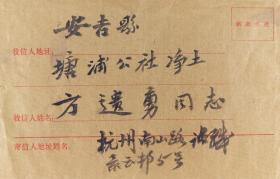 安吉縣
收信人地址:
塘浦公社净土
方遗勇同志
收信人姓名:
杭州南山路
寄信人地址姓名:
5号